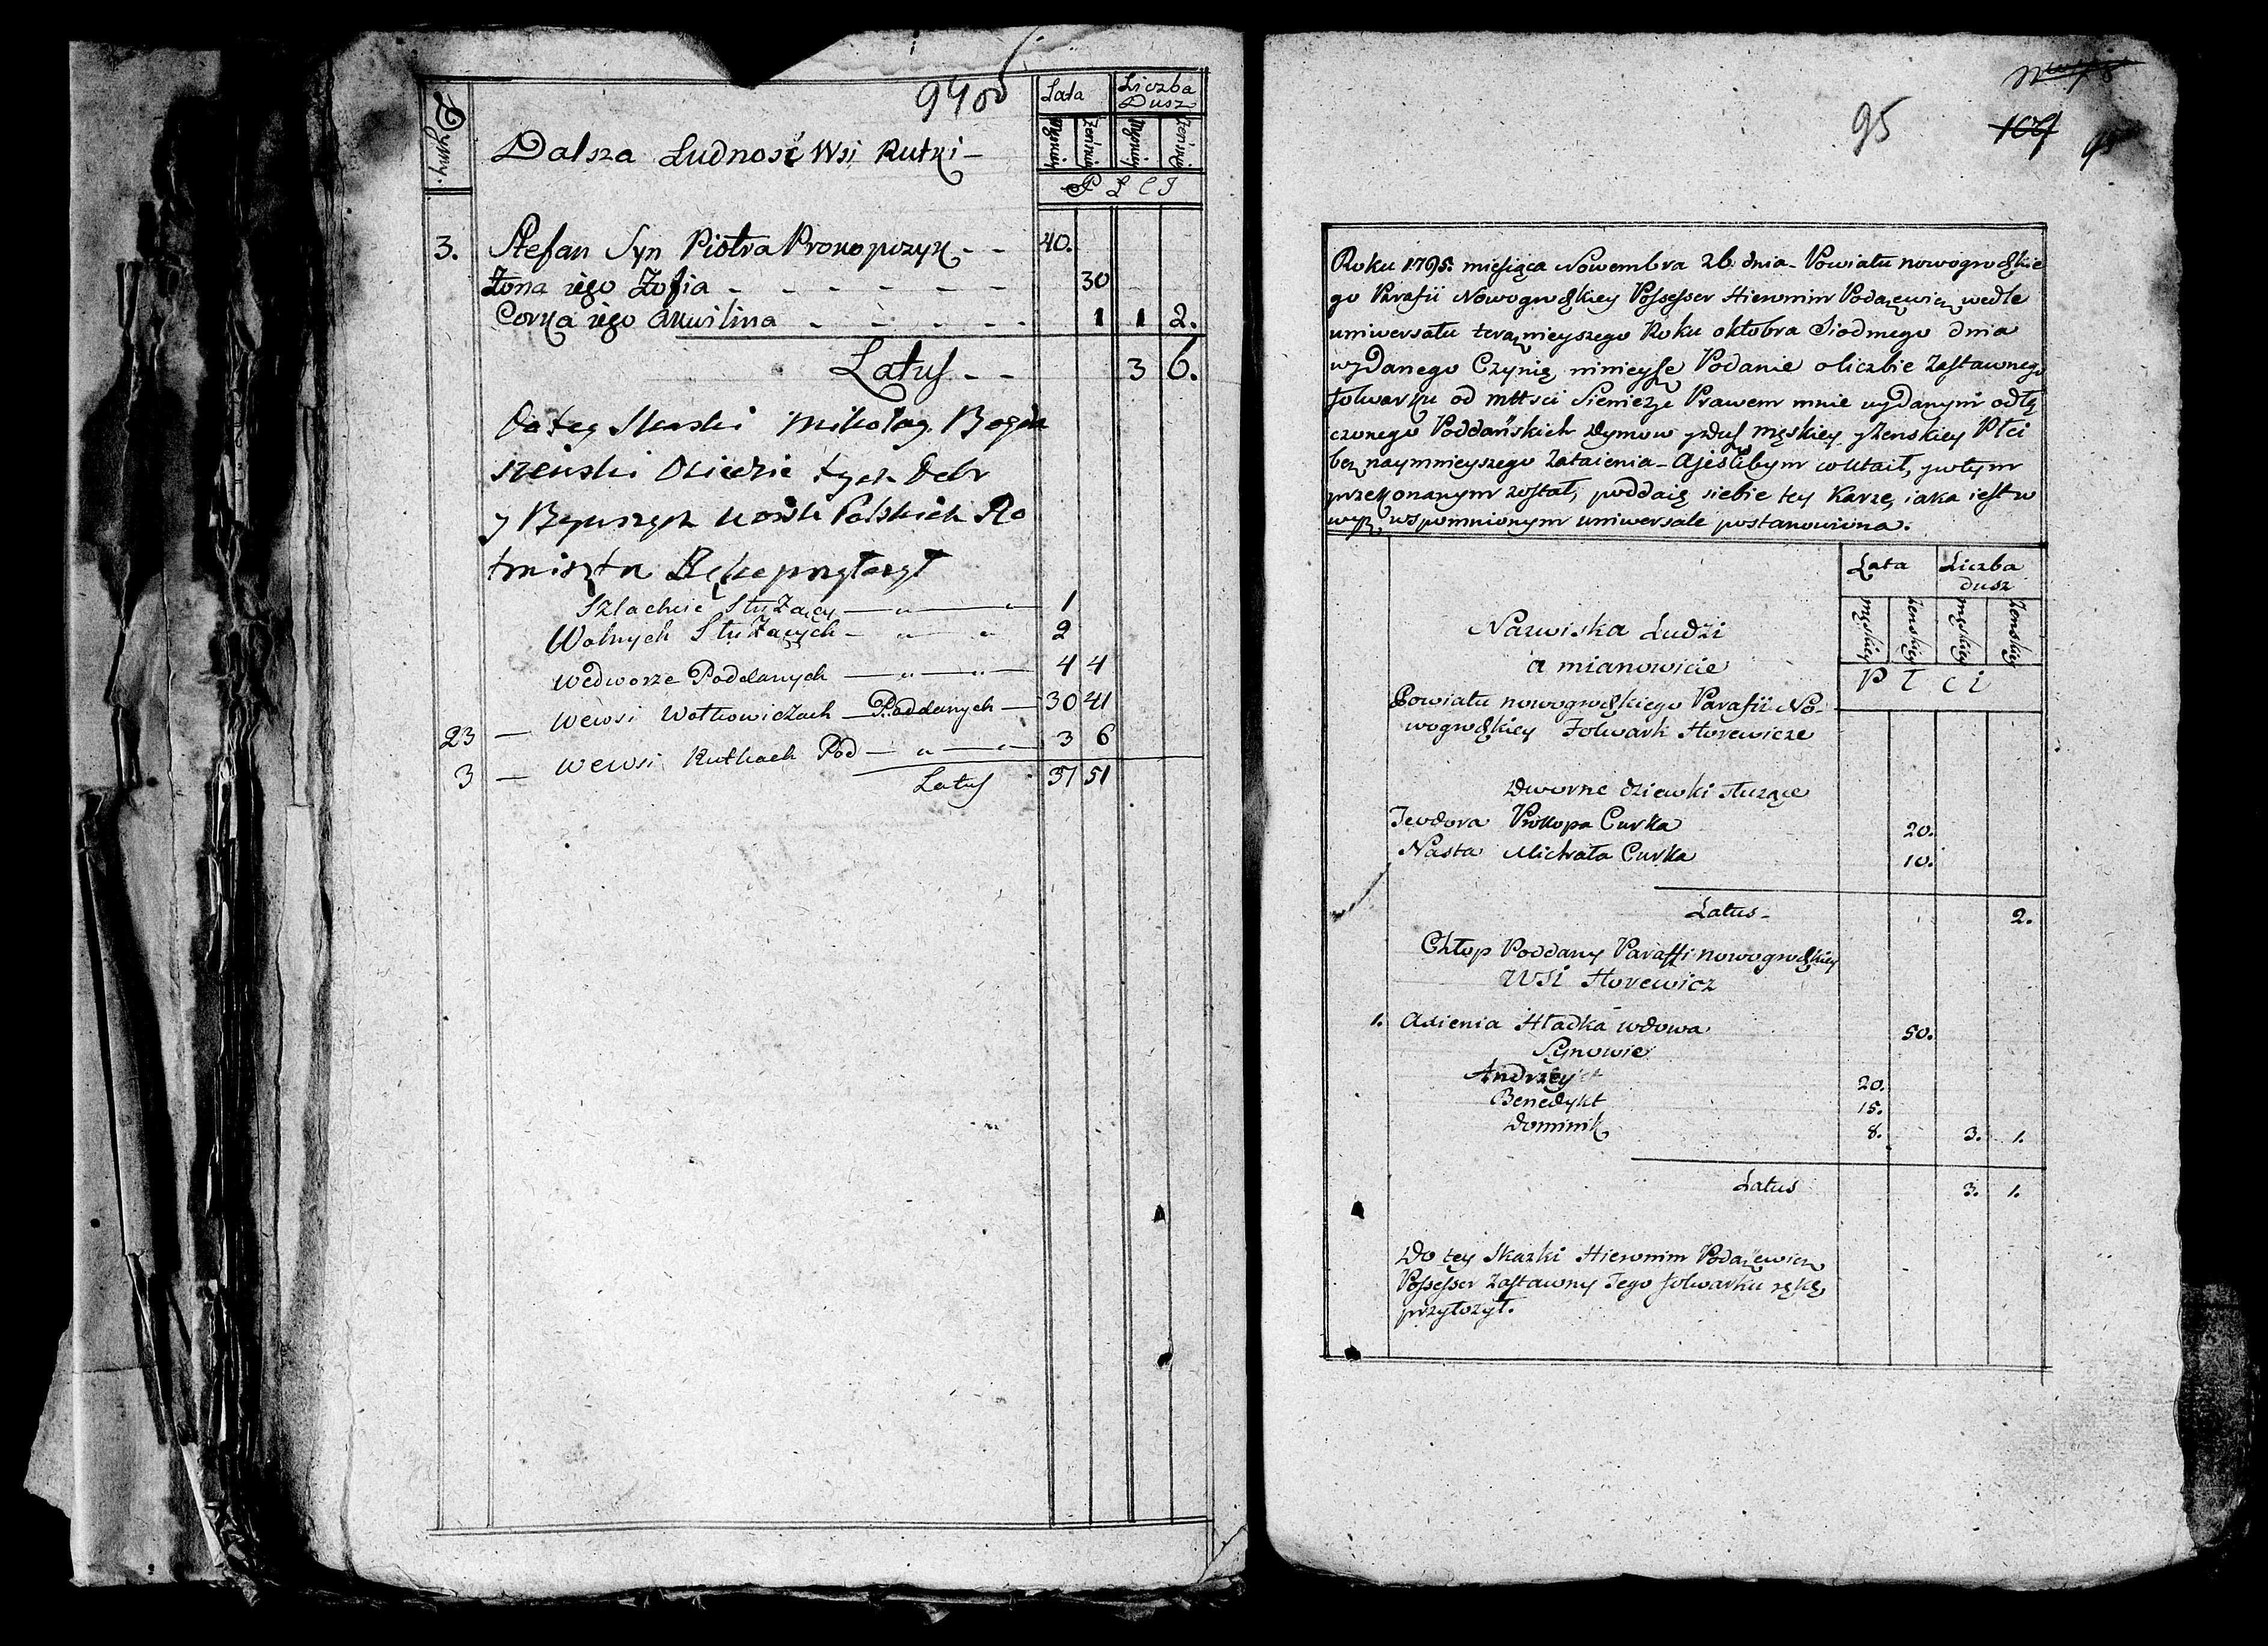 940
Dymy.
Dalsza Ludność Wsi Rutki –
Lata
Liczba Dusz
Męskiey
Żeńskiey
Męskiey
Żeńskiey
P Ł C I
3. Stefan Syn Piotra Prokopczyk – – 40.
Żona iego Zofia – – – – – – 30
Corka iego Akwilina – – – – – 1 1 2.
Latus – – 3 6.
Do tey Skaski Mikołay
Dziedzic tych Dobr
y Bywszych Woysk Polskich Ro
tmistrz Rękę przyłożył
Szlachcic Służący 1
Wolnych Służących 2
wedworze Poddanych 4 4
23 – wewsi Wołkowiczach Poddanych 30 41
3 – wewsi Rutkach Pod 3 6
Latus 37 51
95
107
95
Roku 1795. miesiąca Nowembra 26 dnia – Powiatu nowogrodzkie
go Parafii Nowogrodzkiey Possessor Hieronim Podażewicz wedle
uniwersału teraznieyszego Roku oktobra Siodmego dnia
wydanego Czynię ninieysze Podanie o liczbie Zastawnego
folwarku od Prawem mnie wydanym odłą
czonego Poddańskich Dymow y Dusz męskiey y Zenskiey Płci
bez naymnieyszego Zataienia – A jeślibym co utaił, y w tym
przekonanym został, poddaię siebie tey Karze, iaka iest w
wyz wspomnionym uniwersale postanowiona.
Lata
Liczba dusz
męskiey
żenskiey
męskiey
żenskiey
P ł c i
Nazwiska Ludzi
a mianowicie
Powiatu nowogrodzkiego Parafii No-
wogrodzkiey Folwark Horewicze
Dworne dziewki służące
Teodora Prokopa Curka 20.
Nasta Michała Curka 10.
Latus – 2.
Chłop Poddany Parafii nowogrodzkiey
WSi Horewicz
1. Axienia Hładka wdowa 50.
Synowie
Andrzey 20.
Benedykt 15.
Dominik 8. 3. 1.
Latus 3. 1.
Do tey Skazki Hieronim Podażewicz
Possessor Zastawny Tego folwarku rękę
przyłożył.